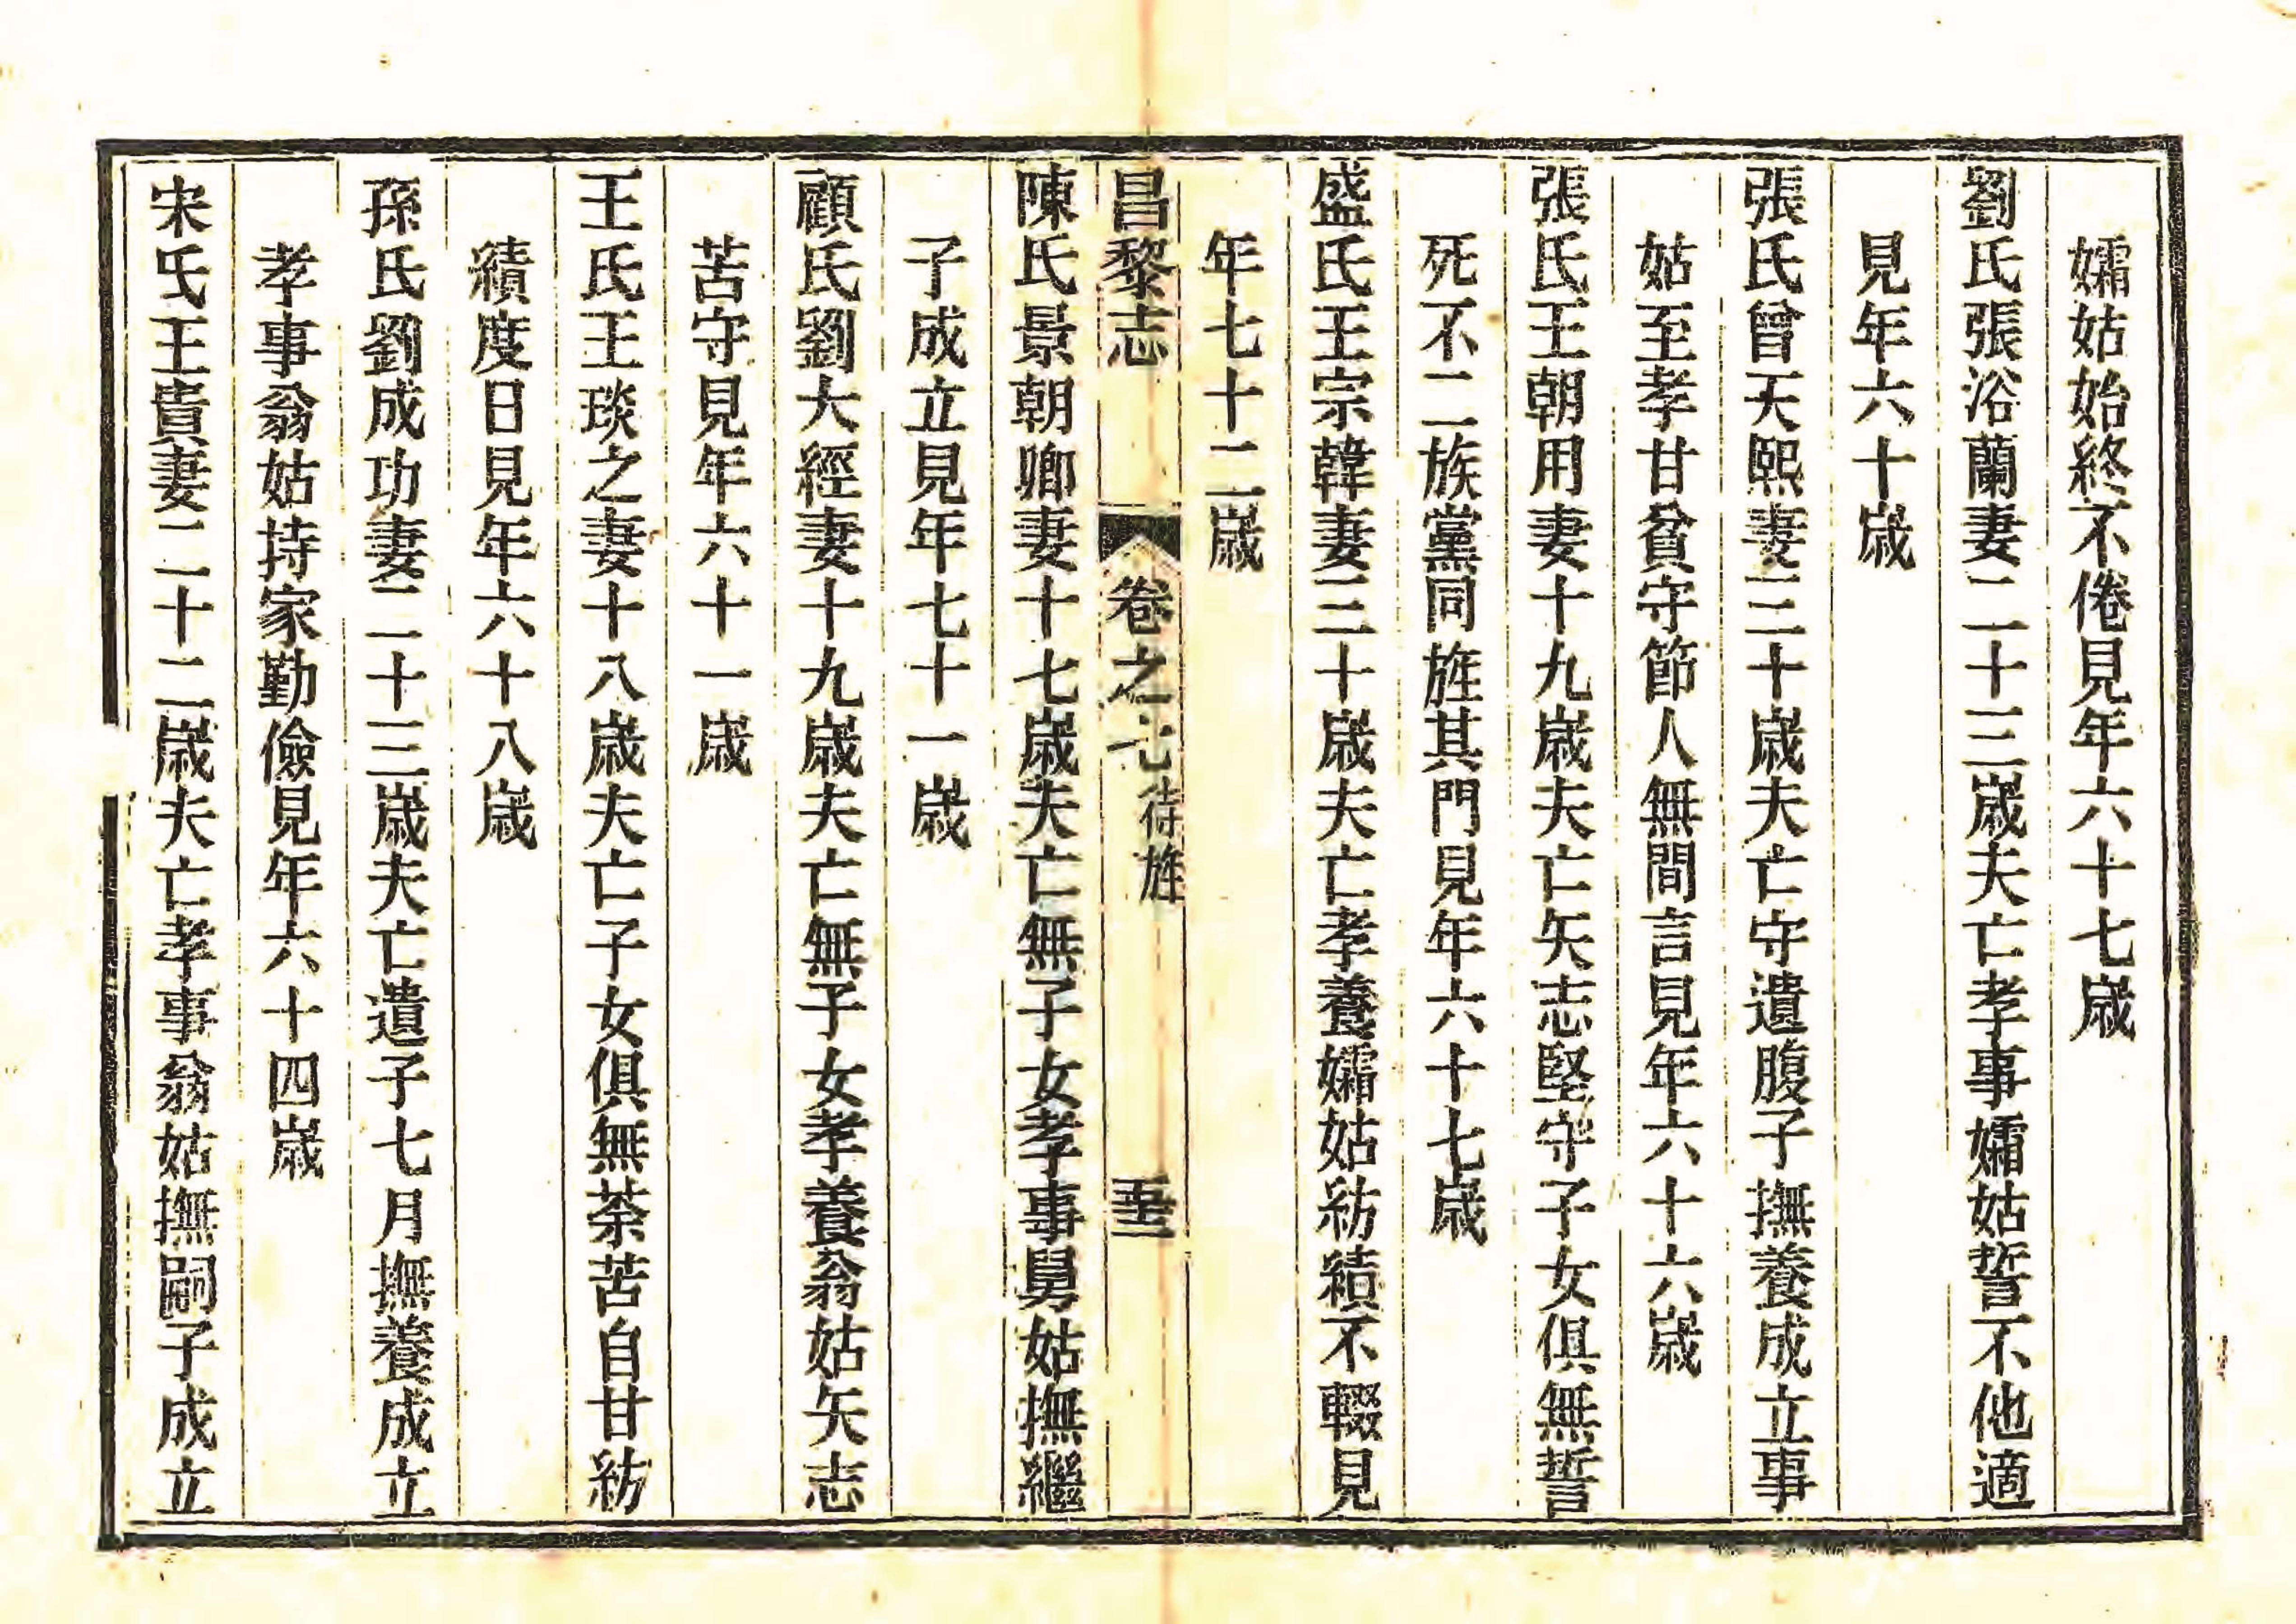 孀姑始終不倦見年六十七歲
劉氏張浴蘭妻二十三歲夫亡孝事孀姑誓不他適
見年六十歲
張氏曾天熙妻三十歲夫亡守遺腹子撫養成立事
姑至孝甘貧守節人無間言見年六十六歲
張氏王朝用妻十九歲夫亡矢志堅守子女俱無誓
死不二族黨同旌其門見年六十七歲
盛氏王宗韓妻三十歲夫亡孝養孀姑紡績不輟見
年七十二歲
昌黎志 卷之七 待旌 五十三
陳氏景朝卿妻十七歲夫亡無子女孝事舅姑撫繼
子成立見年七十一歲
顧氏劉大經妻十九歲夫亡無子女孝養翁姑矢志
苦守見年六十一歲
王氏王琰之妻十八歲夫亡子女俱無荼苦自甘紡
績度日見年六十八歲
孫氏劉成功妻二十三歲夫亡遺子七月撫養成立
孝事翁姑持家勤儉見年六十四歲
宋氏王貴妻二十二歲夫亡孝事翁姑撫嗣子成立